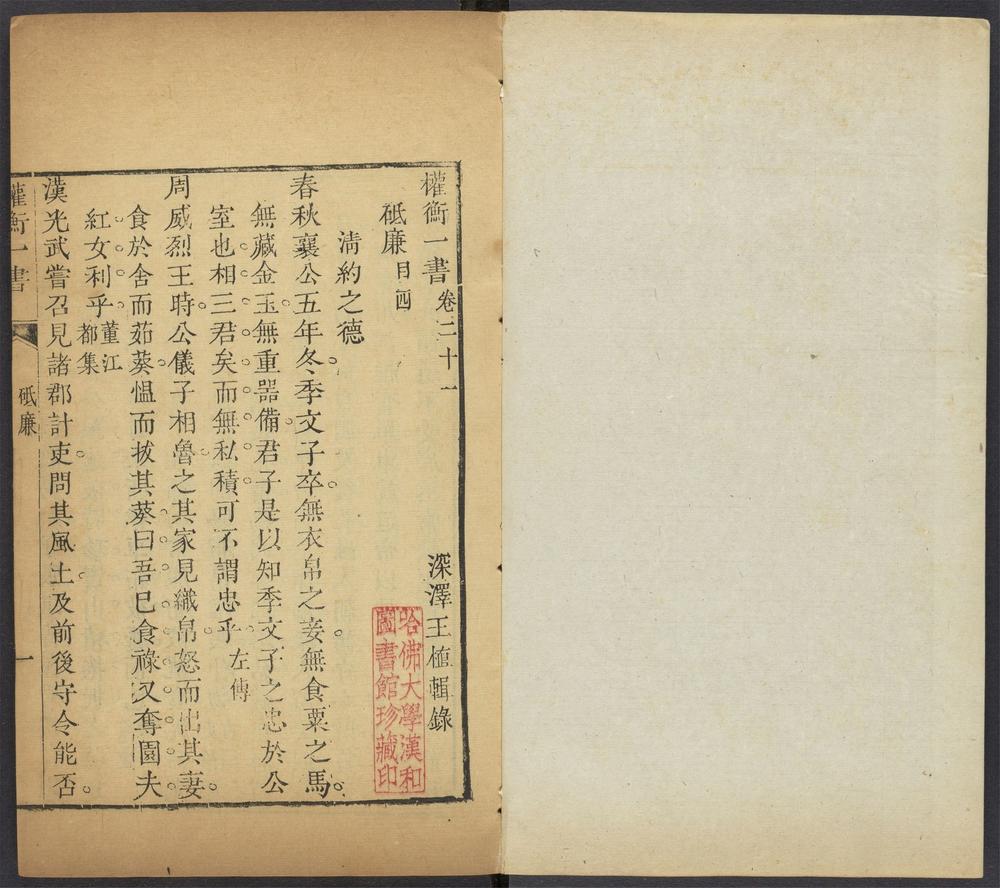 權衡一書卷二十一
深澤王植輯錄
哈佛大學漢和
圖書館珍藏印
砥廉目四
淸約之德
春秋襄公五年冬季文子卒無衣帛之妾無食粟之馬
無藏金玉無重器備君子是以知季文子之忠於公
室也相三君矣而無私積可不謂忠乎左傳
周威烈王時公儀子相魯之其家見織帛怒而出其妻
食於舍而茹葵慍而拔其葵曰吾已食祿又奪園夫
紅女利乎董江
都集
漢光武嘗召見諸郡計吏問其風土及前後守令能否
權衡一書
砥廉
一